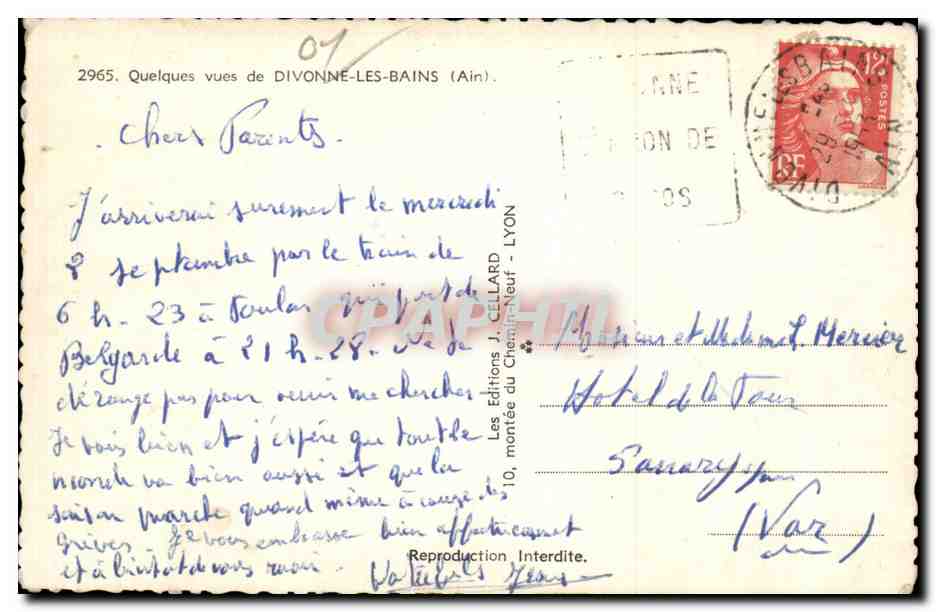 07
2965. Quelques vues de DIVONNE-LES-BAINS (Ain).
Chers Parents.
J'arriverai surement le mercredi
8 septembre par le train de
6 h. 23 à Toulon qui part de
Belgarde à 21 h. 28. Ne se
dérange pas pour venir me chercher
Je vais bien et j'espère que tout le
monde va bien aussi et que la
saison marche quand même à cause des
grèves. Je vous embrasse bien affectueusement
et à bientôt de vous revoir.
Votre fils Jean
Les Editions J. CELLARD
10, montée du Chemin-Neuf - LYON
Reproduction Interdite.
NNE
ON DE
OS
DIVONNE LES BAINS
AIN
12F
POSTES
RF
CPAPHIL
Monsieur et Madame L. Mercier
Hotel de la Tour
Sanary s/mer
(Var)